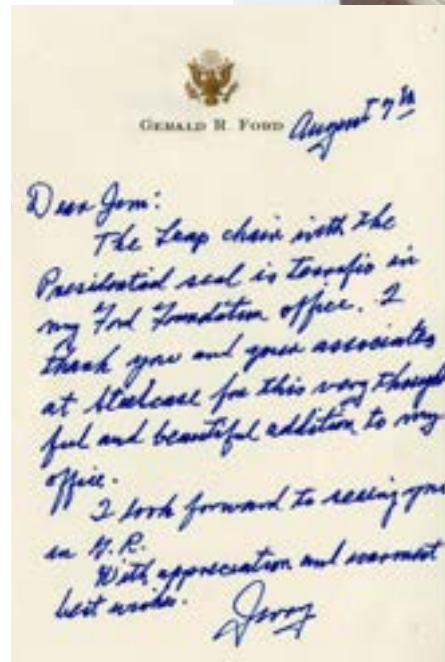 GERALD R. FORD
August 7th
Dear Jim:
The Leap chair with the
Presidential seal is terrific in
my Ford Foundation office. I
thank you and your associates
at Steelcase for this very though
ful and beautiful addition to my
office.
I look forward to seeing you
in G.R.
With appreciation and warmest
best wishes.
Jerry